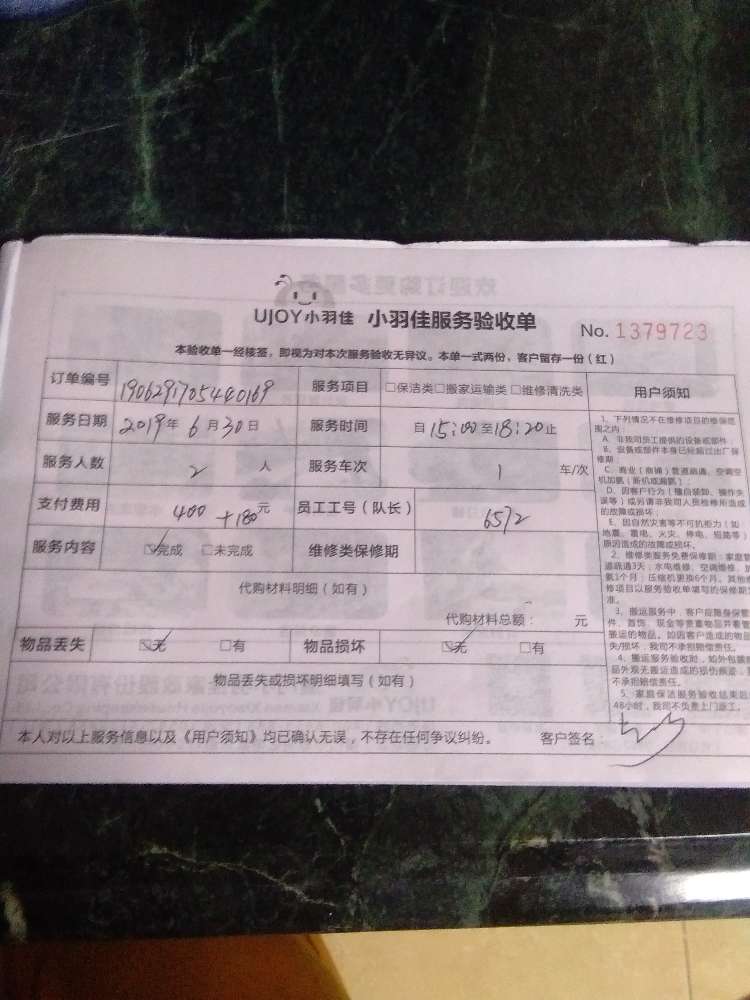 UJOY小羽佳 小羽佳服务验收单 No. 1379723
本验收单一经核签，即视为对本次服务验收无异议。本单一式两份，客户留存一份（红）
订单编号 1906291705440169 服务项目 □保洁类□搬家运输类□维修清洗类 用户须知
服务日期 2019年6月30日 服务时间 自15:00至18:20止
服务人数 2人 服务车次 1车/次
支付费用 400+180元 员工工号（队长） 6572
服务内容 ☑完成 □未完成 维修类保修期
代购材料明细（如有）
代购材料总额： 元
物品丢失 ☑无 □有 物品损坏 ☑无 □有
物品丢失或损坏明细填写（如有）
本人对以上服务信息以及《用户须知》均已确认无误，不存在任何争议纠纷。 客户签名：
1、下列情况不在维修项目的维保范
围之内：
A、非我司员工提供的设备或部件；
B、设备或部件本身已经超过出厂保
修期；
C、商业（商铺）管道疏通、空调空
机加氟（新机或漏氟）；
D、因客户行为（擅自装卸、操作失
误等）或另请非我司人员检修所造成
的故障或损坏；
E、因自然灾害等不可抗拒力（如
地震、雷电、火灾、停电、短路等）
原因造成的故障或损坏。
2、维修类服务免费保修期：家庭管
道疏通3天；水电维修、空调维修、加
氟1个月；压缩机更换6个月。其他维
修项目以服务验收单填写的保修期为
准。
3、搬运服务中，客户应随身保管
件、首饰、现金等贵重物品并看管
搬运的物品。如因客户造成的物品
失/损坏，我司不承担赔偿责任。
4、搬运服务验收时，如外包装
品外观无搬运造成的损伤痕迹，
不承担赔偿责任。
5、家庭保洁服务验收结束后
48小时，我司不负责上门返工。